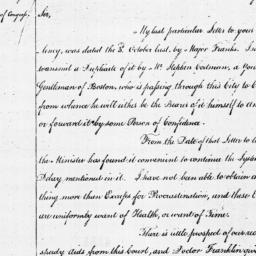 of Congress.
Sir,
My last particular Letter to your
lency, was dated the 3d. October last, by Major Franks. I
transmit a Duplicate of it by Mr. Stephen
Gentleman of Boston, who is passing through this City to
from whence he will either be the Bearer of it himself to
or forward it by some Person of Confidence.
From the Date of that Letter to
the Minister has found it convenient to continue the System
Delay mentioned in it. I have not been able to obtain
thing more than Excuses for Procrastination, and these
are uniformly want of Health, or want of Time.
There is little prospect of our
speedy aids from this Court, and Doctor Franklin